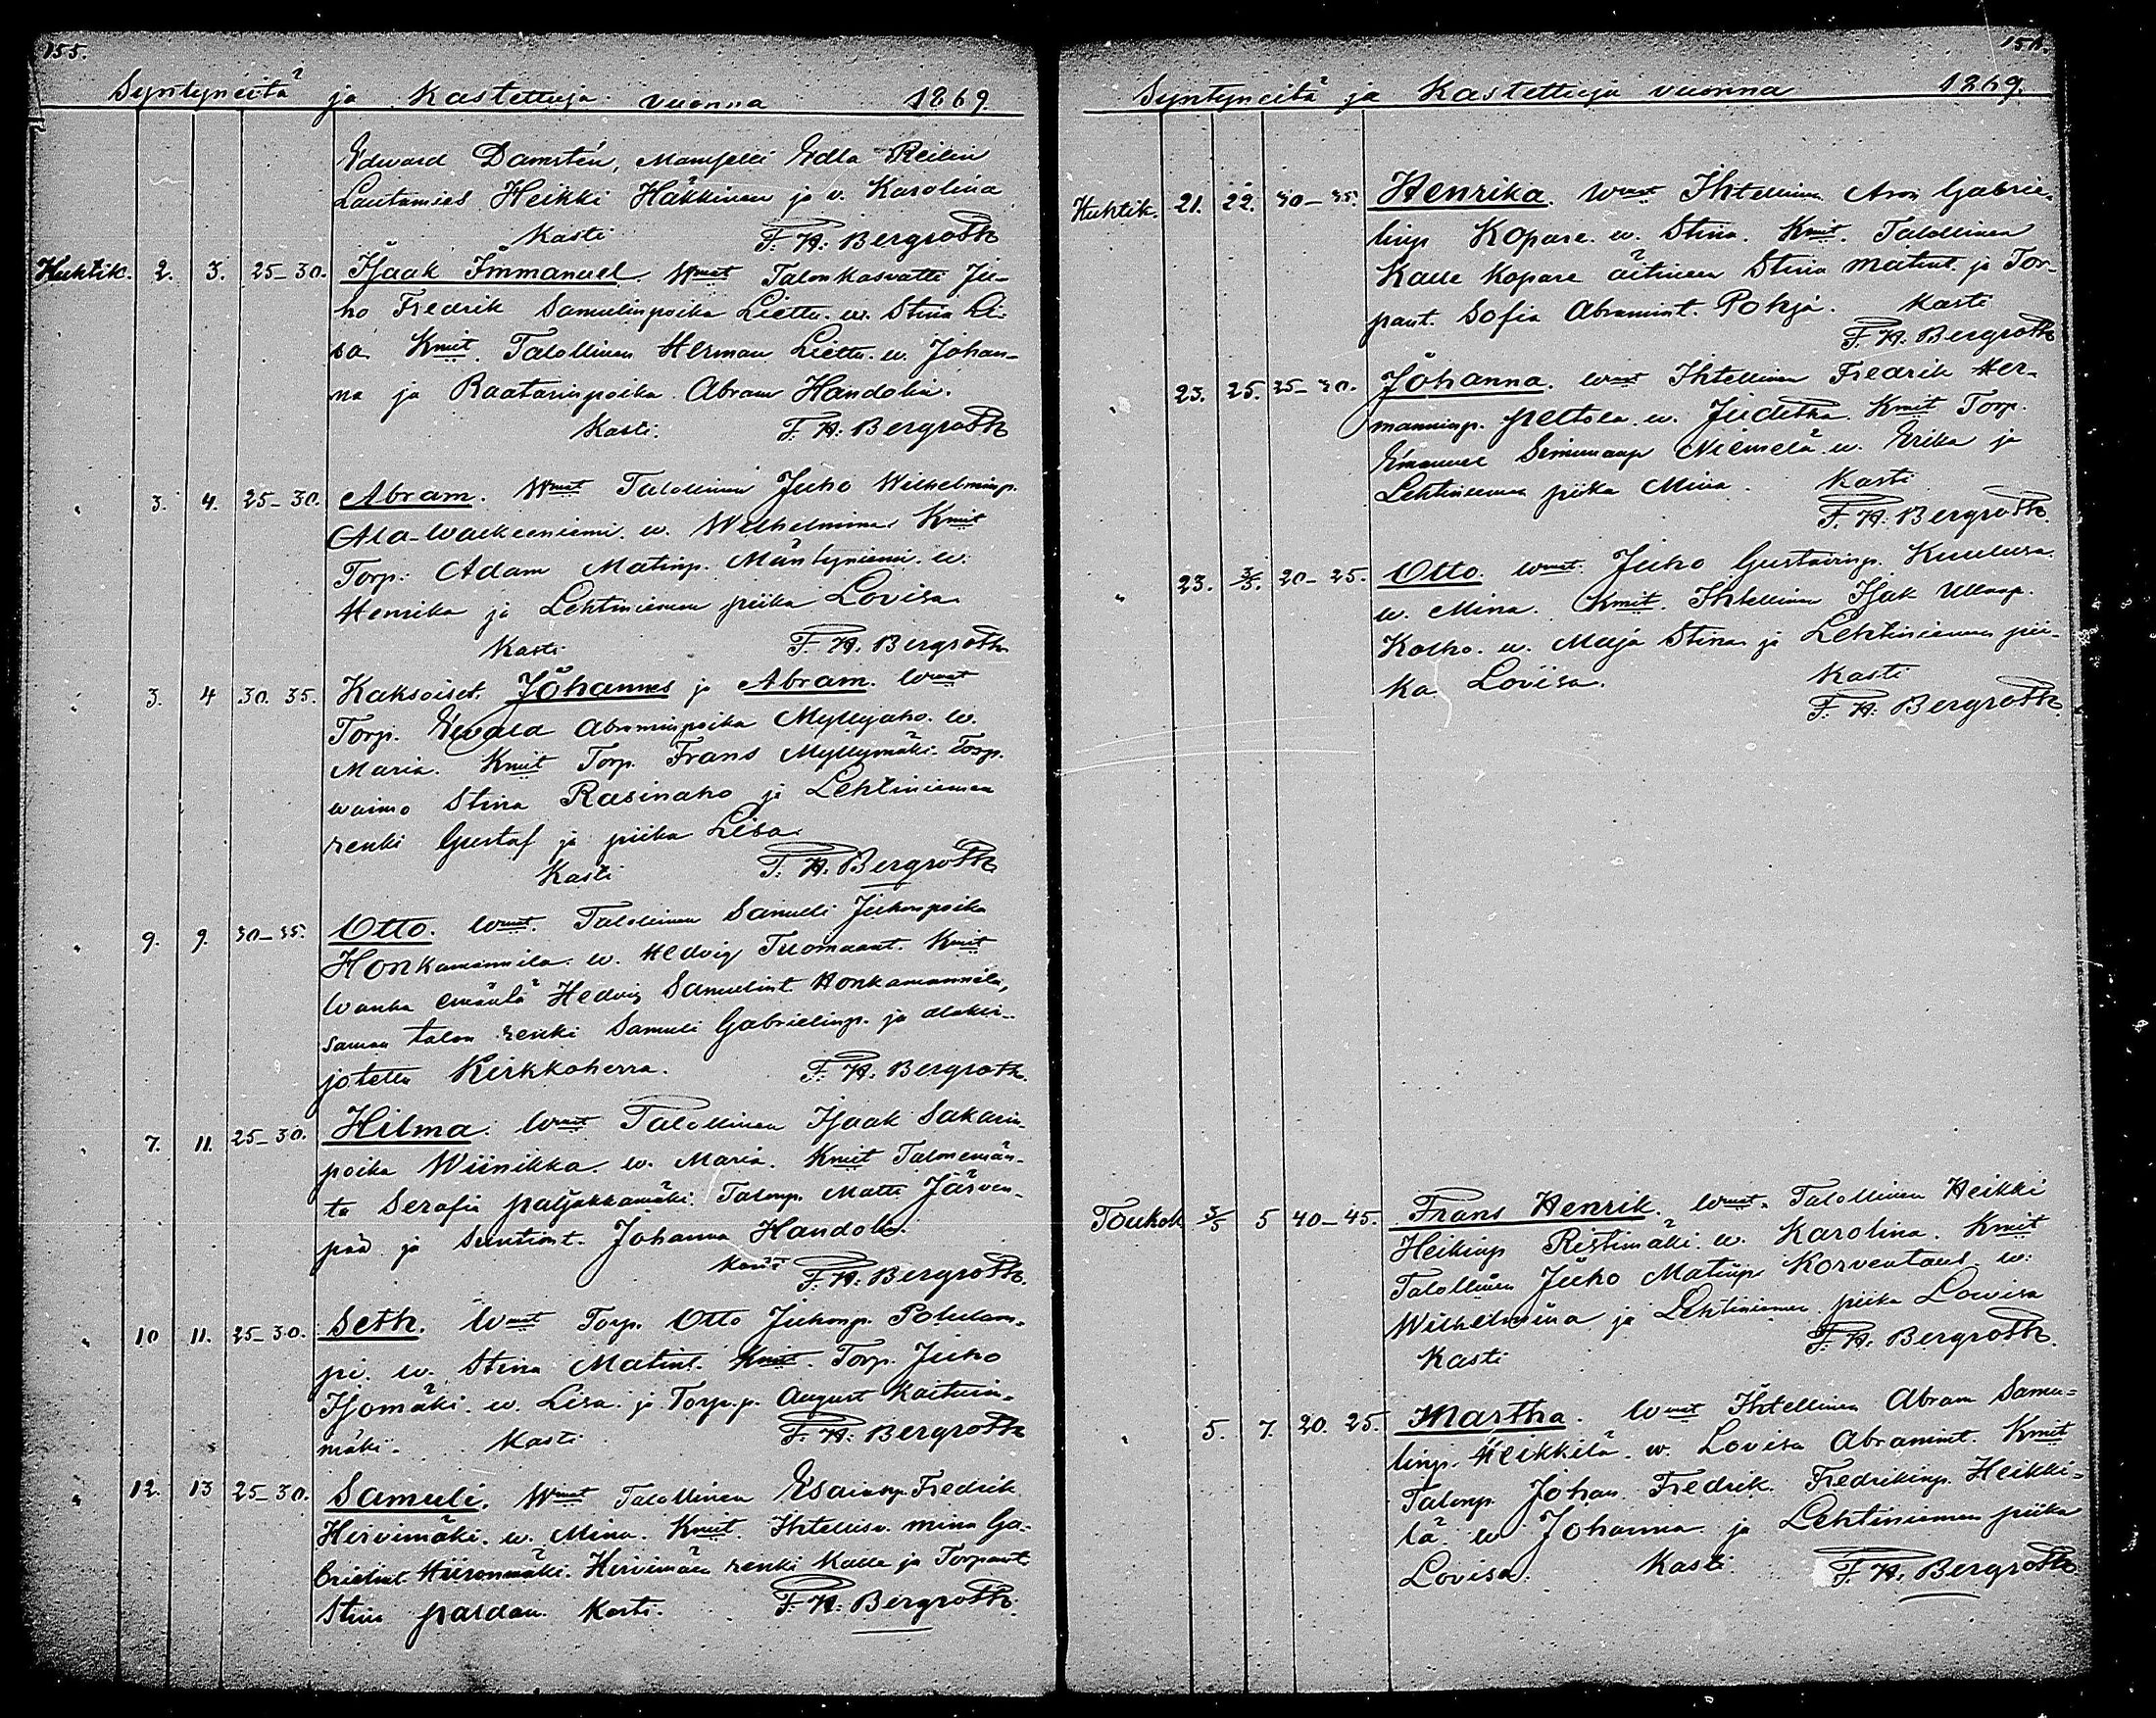 155.
Syntyneitä ja Kastettuja vuonna 1869
Edward Damstén, Mamselli Edla Reilin
Lautamies Heikki Häkkinen ja v. Karolina
Kasti F. H. Bergroth
Huhtik. 2. 3. 25-30. Isaak Immanuel. Wmat Talonkasvatti Ju-
ho Fredrik Samulinpoika Liettu. w. Stina Li-
sa. Kmit. Talollinen Herman Liettu. w. Johan-
na ja Raatarinpoika Abram Handolin.
Kasti. F. H. Bergroth
" 3. 4. 25-30. Abram. Wmat Talollinen Juho Wilhelminp.
Ala-Walkeeniemi. w. Wilhelmina Kmit
Torp. Adam Matinp. Mäntyniemi. w.
Henrika ja Lehtiniemen piika Lovisa
Kasti F. H. Bergroth
" 3. 4 30. 35. Kaksoiset. Johannes ja Abram. Wmat
Torp. Ewald Abraminpoika Myllyaho. w.
Maria. Kmit Torp. Frans Myllymäki. Torp.
waimo Stina Rasinaho ja Lehtiniemen
renki Gustaf ja piika Lisa
Kasti F. H. Bergroth
" 9. 9. 30-35. Otto. Wmat. Talollinen Samuli Juhonpoika
Honkamannila. w. Hedvig Tuomaant. Kmit
Wanha emäntä Hedvig Samulint. Honkamannila,
saman talon renki Samuli Gabrielinp. ja allekir-
jotettu Kirkkoherra. F. H. Bergroth.
" 7. 11. 25-30. Hilma. Wmat Talollinen Isaak Sakarin-
poika Wiinikka. w. Maria. Kmit Talonemän-
tä Serafia Paljakkamäki. Talonp. Matti Järven-
pää ja Suntiont. Johanna Handolin.
Kasti F. H. Bergroth.
" 10 11. 25-30. Seth. Wmat Torp. Otto Juhonp. Polulam-
pi. w. Stina Matint. Kmit. Torp. Juho
Isomäki. w. Lisa. ja Torp.p. August Kaituin-
mäki. Kasti F. H. Bergroth
" 12. 13 25-30. Samuli. Wmat Talollinen Esaianp. Fredrik
Hirvimäki. w. Mina. Kmit. Ihtellisv. Mina Ga-
brielint. Hiironmäki. Hirvimäen renki Kalle ja Torpant.
Stina Paldan. Kasti. F. H. Bergroth.
156.
Syntyneitä ja Kastettuja vuonna 1869.
Huhtik. 21. 22. 30-35. Henrika. Wmat Ihtellinen Aron Gabrie-
linp. Kopare. w. Stina. Kmit. Talollinen
Kalle Kopare äitineen Stina Matint. ja Tor-
pant. Sofia Abramint. Pohja. Kasti
F. H. Bergroth
" 23. 25. 25-30. Johanna. Wmat Ihtellinen Fredrik Her-
manninp. Peltola. w. Juditha. Kmit Torp.
Emanuel Simunanp. Niemelä. w. Erika ja
Lehtiniemen piika Mina. Kasti
F. H. Bergroth.
" 23. 3/5. 20-25. Otto Wmat. Juho Gustavinp. Kuuluisa.
w. Mina. Kmit. Ihtellinen Isak Ullanp.
Kolho. w. Maja Stina ja Lehtiniemen pii-
ka Lovisa. Kasti
F. H. Bergroth.
Toukok 3/5 5 40-45. Frans Henrik. Wmat. Talollinen Heikki
Heikinp. Ristimäki. w. Karolina. Kmit
Talollinen Juho Matinp. Korventaus. w.
Wilhelmina ja Lehtiniemen piika Lowisa
Kasti F. H. Bergroth.
" 5. 7. 20. 25. Martha. Wmat Ihtellinen Abram Samu-
linp. Heikkilä. w. Lovisa Abramint. Kmit
Talonp. Johan Fredrik Fredrikinp. Heikki-
lä w Johanna ja Lehtiniemen piika
Lovisa. Kasti. F. H. Bergroth